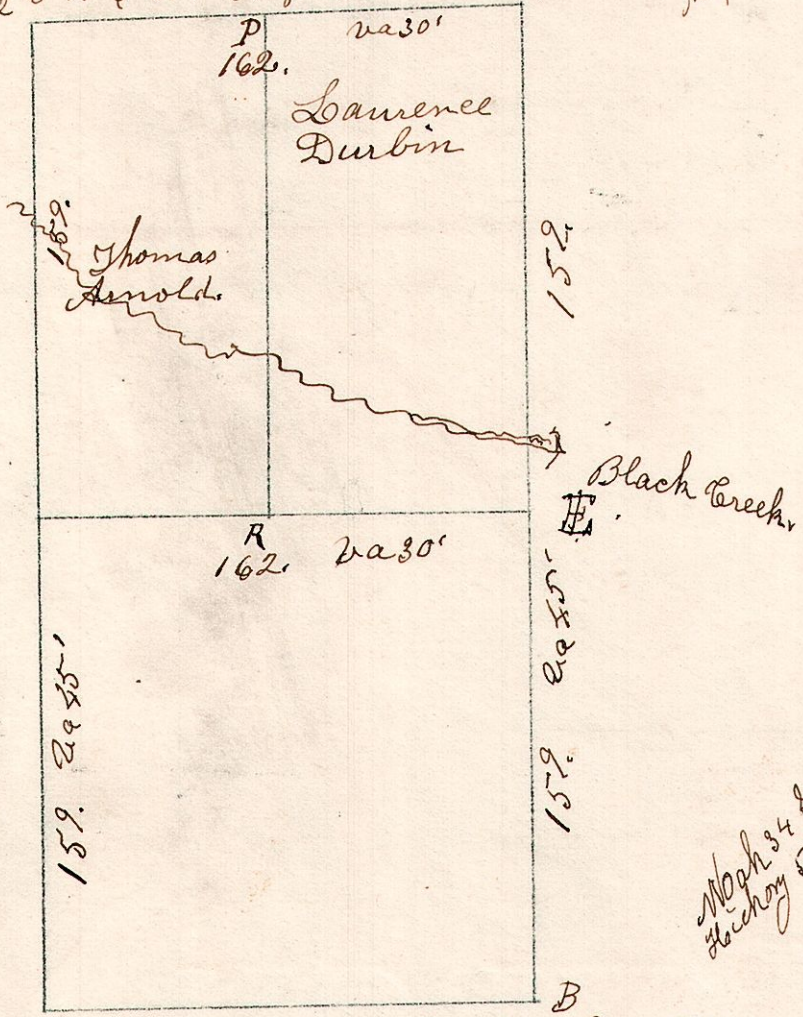 P
va 30'
162.
Laurence
Durbin
159.
Thomas
Arnold.
159.
Black Creek.
E
R
162. va 30'
va 45'
159. va 45'
159.
W oak 34
Hickory 5
B